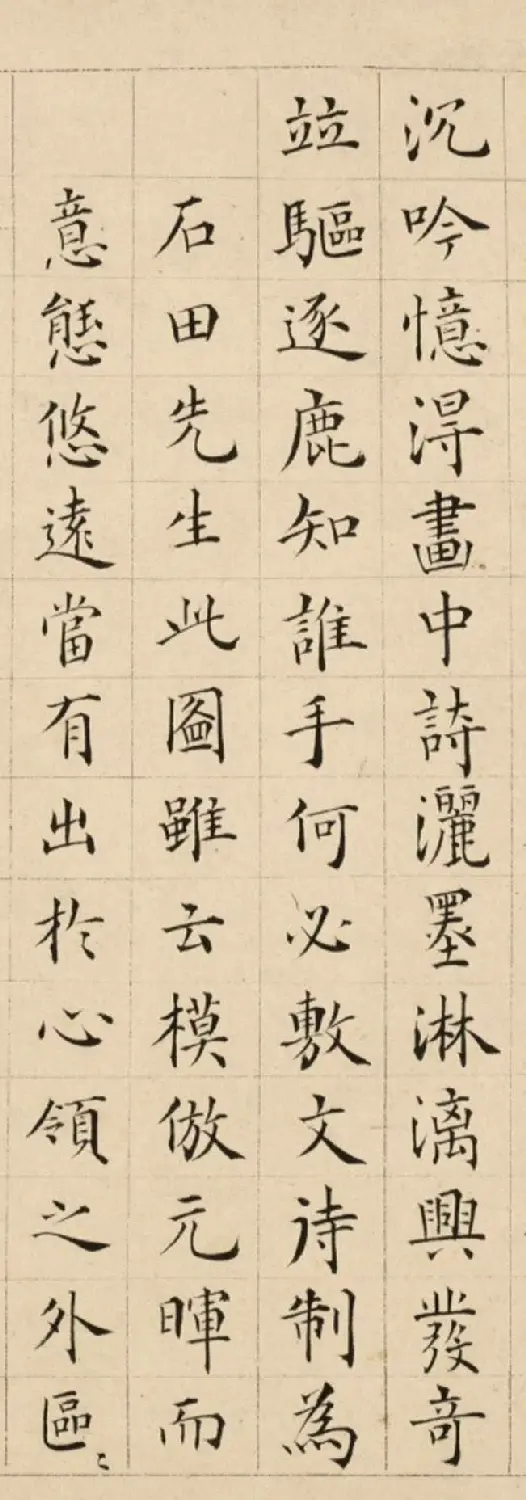 沉吟憶淂畫中詩灑墨淋漓興發奇
竝驅逐鹿知誰手何必敷文待制為
石田先生此圖雖云模倣元暉而
意態悠遠當有出於心領之外區〻